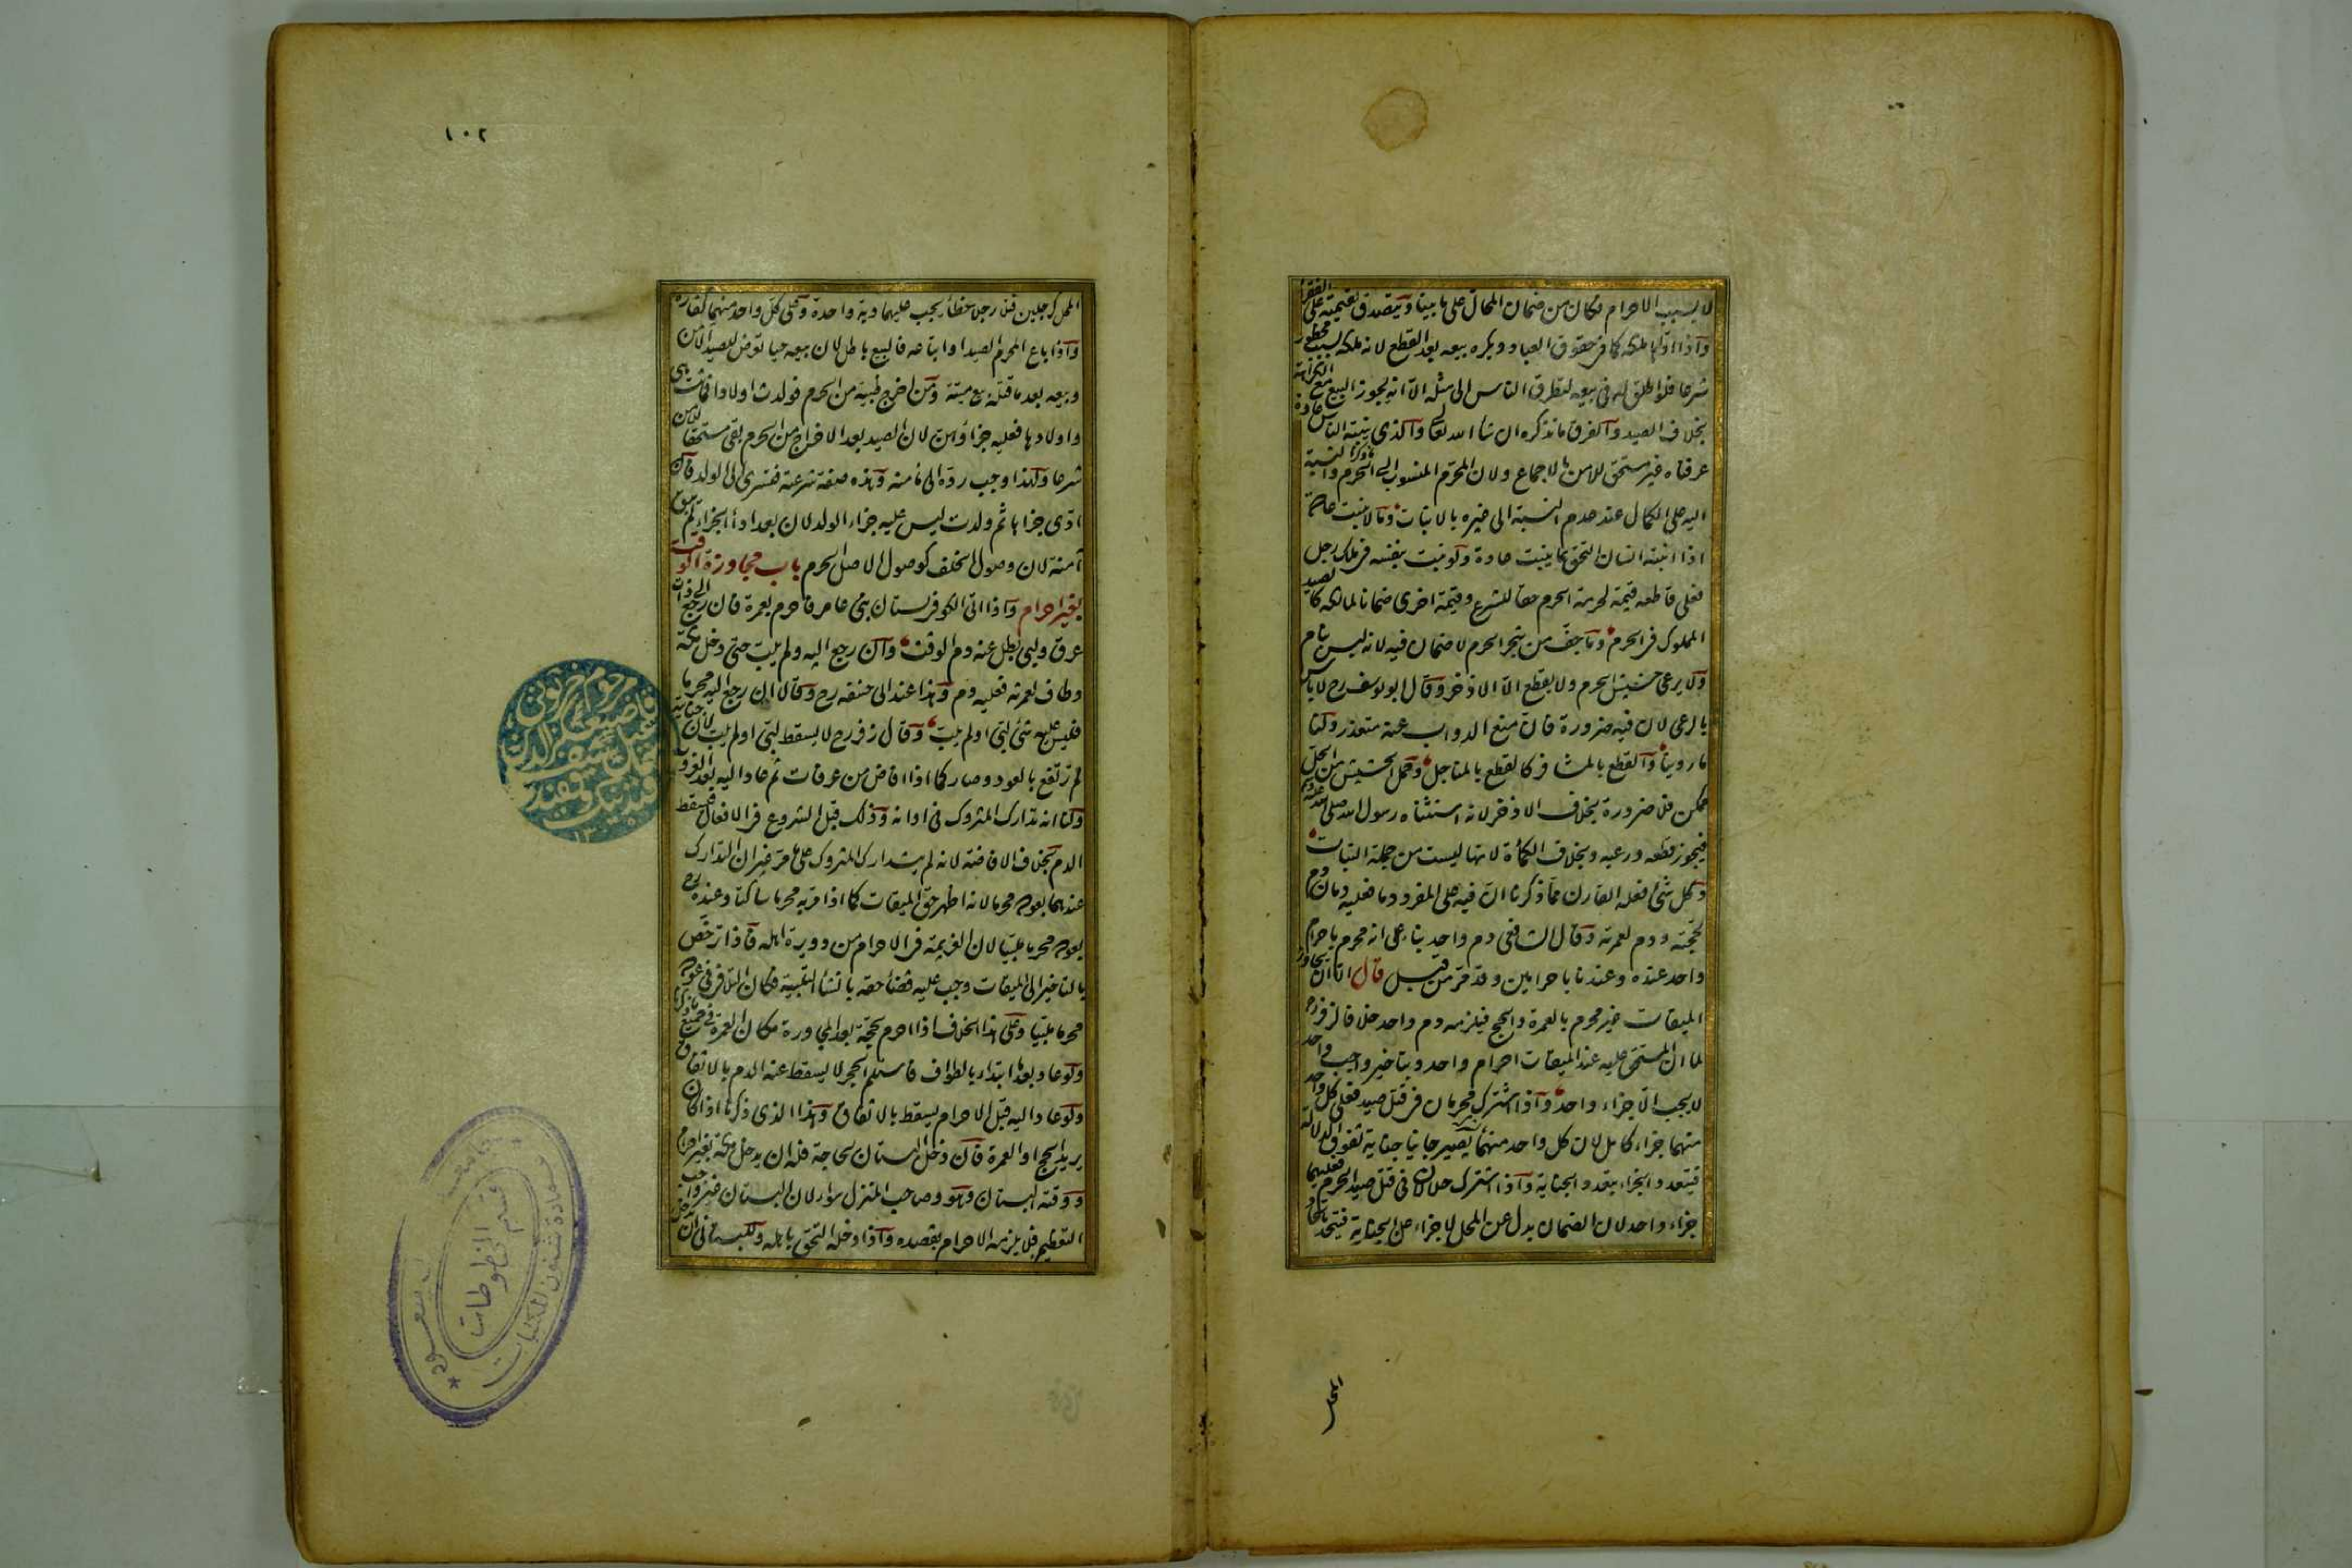 لا بسبب الاحرام فكان من ضمان المحال على ما بينا ويتصدق بقيمته على الفقراء
واذا اداها ملكه كما فى حقوق العباد ويكره بيعه بعد القطع لانه ملكه بسبب محظور
شرعا فلو اطلق له فى بيعه لتطرق الناس الى مثله الا انه يجوز البيع مع الكراهة
بخلاف الصيد والفرق ما نذكره ان شاء الله تعالى والذى ينبته الناس عادة
عرفناه غير مستحق للامن بالاجماع ولان المحرم المنسوب الى الحرم والنسبة
اليه على الكمال عند عدم النسبة الى غيره بالانبات وما لا ينبت عادة
اذا انبته انسان التحق بما ينبت عادة ولو نبت بنفسه فى ملك رجل
فعلى قاطعه قيمة لحرمة الحرم حقا للشرع وقيمة اخرى ضمانا لمالكه كالصيد
المملوك فى الحرم وما جف من شجر الحرم لا ضمان فيه لانه ليس بنام
ولا يرعى حشيش الحرم ولا يقطع الا الاذخر وقال ابو يوسف رح لا باس
بالرعى لان فيه ضرورة فان منع الدواب عنه متعذر ولنا
ما روينا والقطع بالمشافر كالقطع بالمناجل وحمل الحشيش من الحل
ممكن فلا ضرورة بخلاف الاذخر لانه استثناه رسول الله صلى الله عليه وسلم
فيجوز قطعه ورعيه وبخلاف الكمأة لانها ليست من جملة النبات
وكل شئ فعله القارن مما ذكرنا ان فيه على المفرد دما فعليه دمان دم
لحجته ودم لعمرته وقال الشافعى دم واحد بناء على انه محرم باحرام
واحد عنده وعندنا باحرامين وقد مر من قبل قال الا ان يتجاوز
الميقات غير محرم بالعمرة والحج فيلزمه دم واحد خلافا لزفر رح
لما ان المستحق عليه عند الميقات احرام واحد وبتاخير واجب واحد
لا يجب الا جزاء واحد واذا اشترك محرمان فى قتل صيد فعلى كل واحد
منهما جزاء كامل لان كل واحد منهما يصير جانيا جناية تفوق الدلالة
فيتعدد الجزاء بتعدد الجناية واذا اشترك حلالان فى قتل صيد الحرم فعليهما
جزاء واحد لان الضمان بدل عن المحل لا جزاء عن الجناية فيتحد باتحاد
المحل
١٠٢
المحل كرجلين قتلا رجلا خطأ يجب عليهما دية واحدة وعلى كل واحد منهما كفارة
واذا باع المحرم الصيد او ابتاعه فالبيع باطل لان بيعه حيا تعرض للصيد الآمن
وبيعه بعد ما قتله بيع ميتة ومن اخرج ظبية من الحرم فولدت اولادا فماتت هى
واولادها فعليه جزاؤهن لان الصيد بعد الاخراج من الحرم بقى مستحقا للامن
شرعا ولهذا وجب رده الى مأمنه وهذه صفة شرعية فتسرى الى الولد فان
ادى جزاءها ثم ولدت ليس عليه جزاء الولد لان بعد اداء الجزاء لم تبق
آمنة لان وصول الخلف كوصول الاصل الى الحرم باب مجاوزة الوقت
بغير احرام واذا اتى الكوفى بستان بنى عامر فاحرم بعمرة فان رجع الى ذات
عرق ولبى بطل عنه دم الوقت وان رجع اليه ولم يلب حتى دخل مكة
وطاف لعمرته فعليه دم وهذا عند ابى حنيفة رح وقالا ان رجع اليه محرما
فليس عليه شئ لبى او لم يلب وقال زفر رح لا يسقط لبى او لم يلب لان جنايته
لم ترتفع بالعود وصار كما اذا افاض من عرفات ثم عاد اليه بعد الغروب
ولنا انه تدارك المتروك فى اوانه وذلك قبل الشروع فى الافعال فيسقط
الدم بخلاف الافاضة لانه لم يتدارك المتروك على ما مر غير ان التدارك
عندهما بعوده محرما لانه اظهر حق الميقات كما اذا مر به محرما ساكتا وعنده رح
بعوده محرما ملبيا لان العزيمة فى الاحرام من دويرة اهله فاذا ترخص
بالتاخير الى الميقات وجب عليه قضاء حقه بانشاء التلبية فكان التلافى فى عوده
محرما ملبيا وعلى هذا الخلاف اذا احرم بحجة بعد المجاوزة مكان العمرة فى جميع ما ذكرنا
ولو عاد بعد ما ابتداء بالطواف فاستلم الحجر لا يسقط عنه الدم بالاتفاق
ولو عاد اليه قبل الاحرام يسقط بالاتفاق وهذا الذى ذكرنا اذا كان
يريد الحج او العمرة فان دخل البستان لحاجة فله ان يدخل مكة بغير احرام
ووقته البستان وهو وصاحب المنزل سواء لان البستان غير واجب
التعظيم فلا يلزمه الاحرام بقصده واذا دخله التحق باهله وللبستانى ان يدخل
قسم المخطوطات
عمادة شئون المكتبات